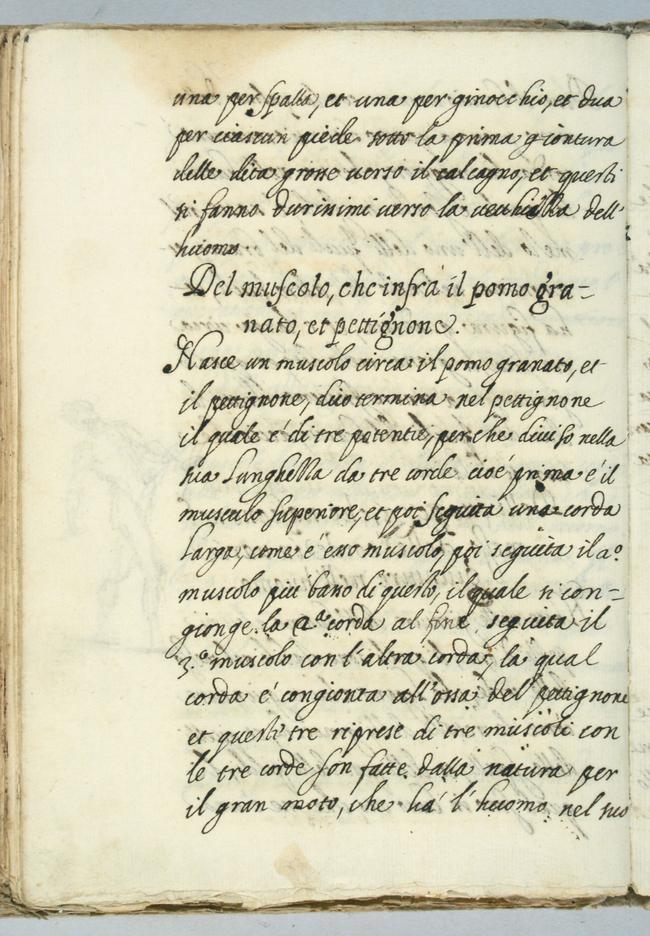 una per spalla, et una per ginocchio, et dua
per ciascun piede sotto la prima giontura
delle dita grosse verso il calcagno, et questi
si fanno durissimi verso la vecchiezza dell'
huomo
Del muscolo, che infra il pomo gra=
nato, et pettignone.
Nasce un muscolo circa il pomo granato, et
il pettignone, dico termina nel pettignone
il quale é di tre potentie, perche diviso nella
sua Lunghezza da tre corde cioé prima é il
musculo superiore, et poi seguita una corda
Larga, come é esso muscolo, poi seguita il 2º
muscolo piu basso di questo, il quale si con=
gionge la 2ª corda al fine seguita il
3º muscolo con l'altra corda, la qual
corda é congionta all'ossa del pettignone
et questi tre riprese di tre muscoli con
le tre corde son fatte dalla natura per
il gran moto, che há l'huomo nel suo